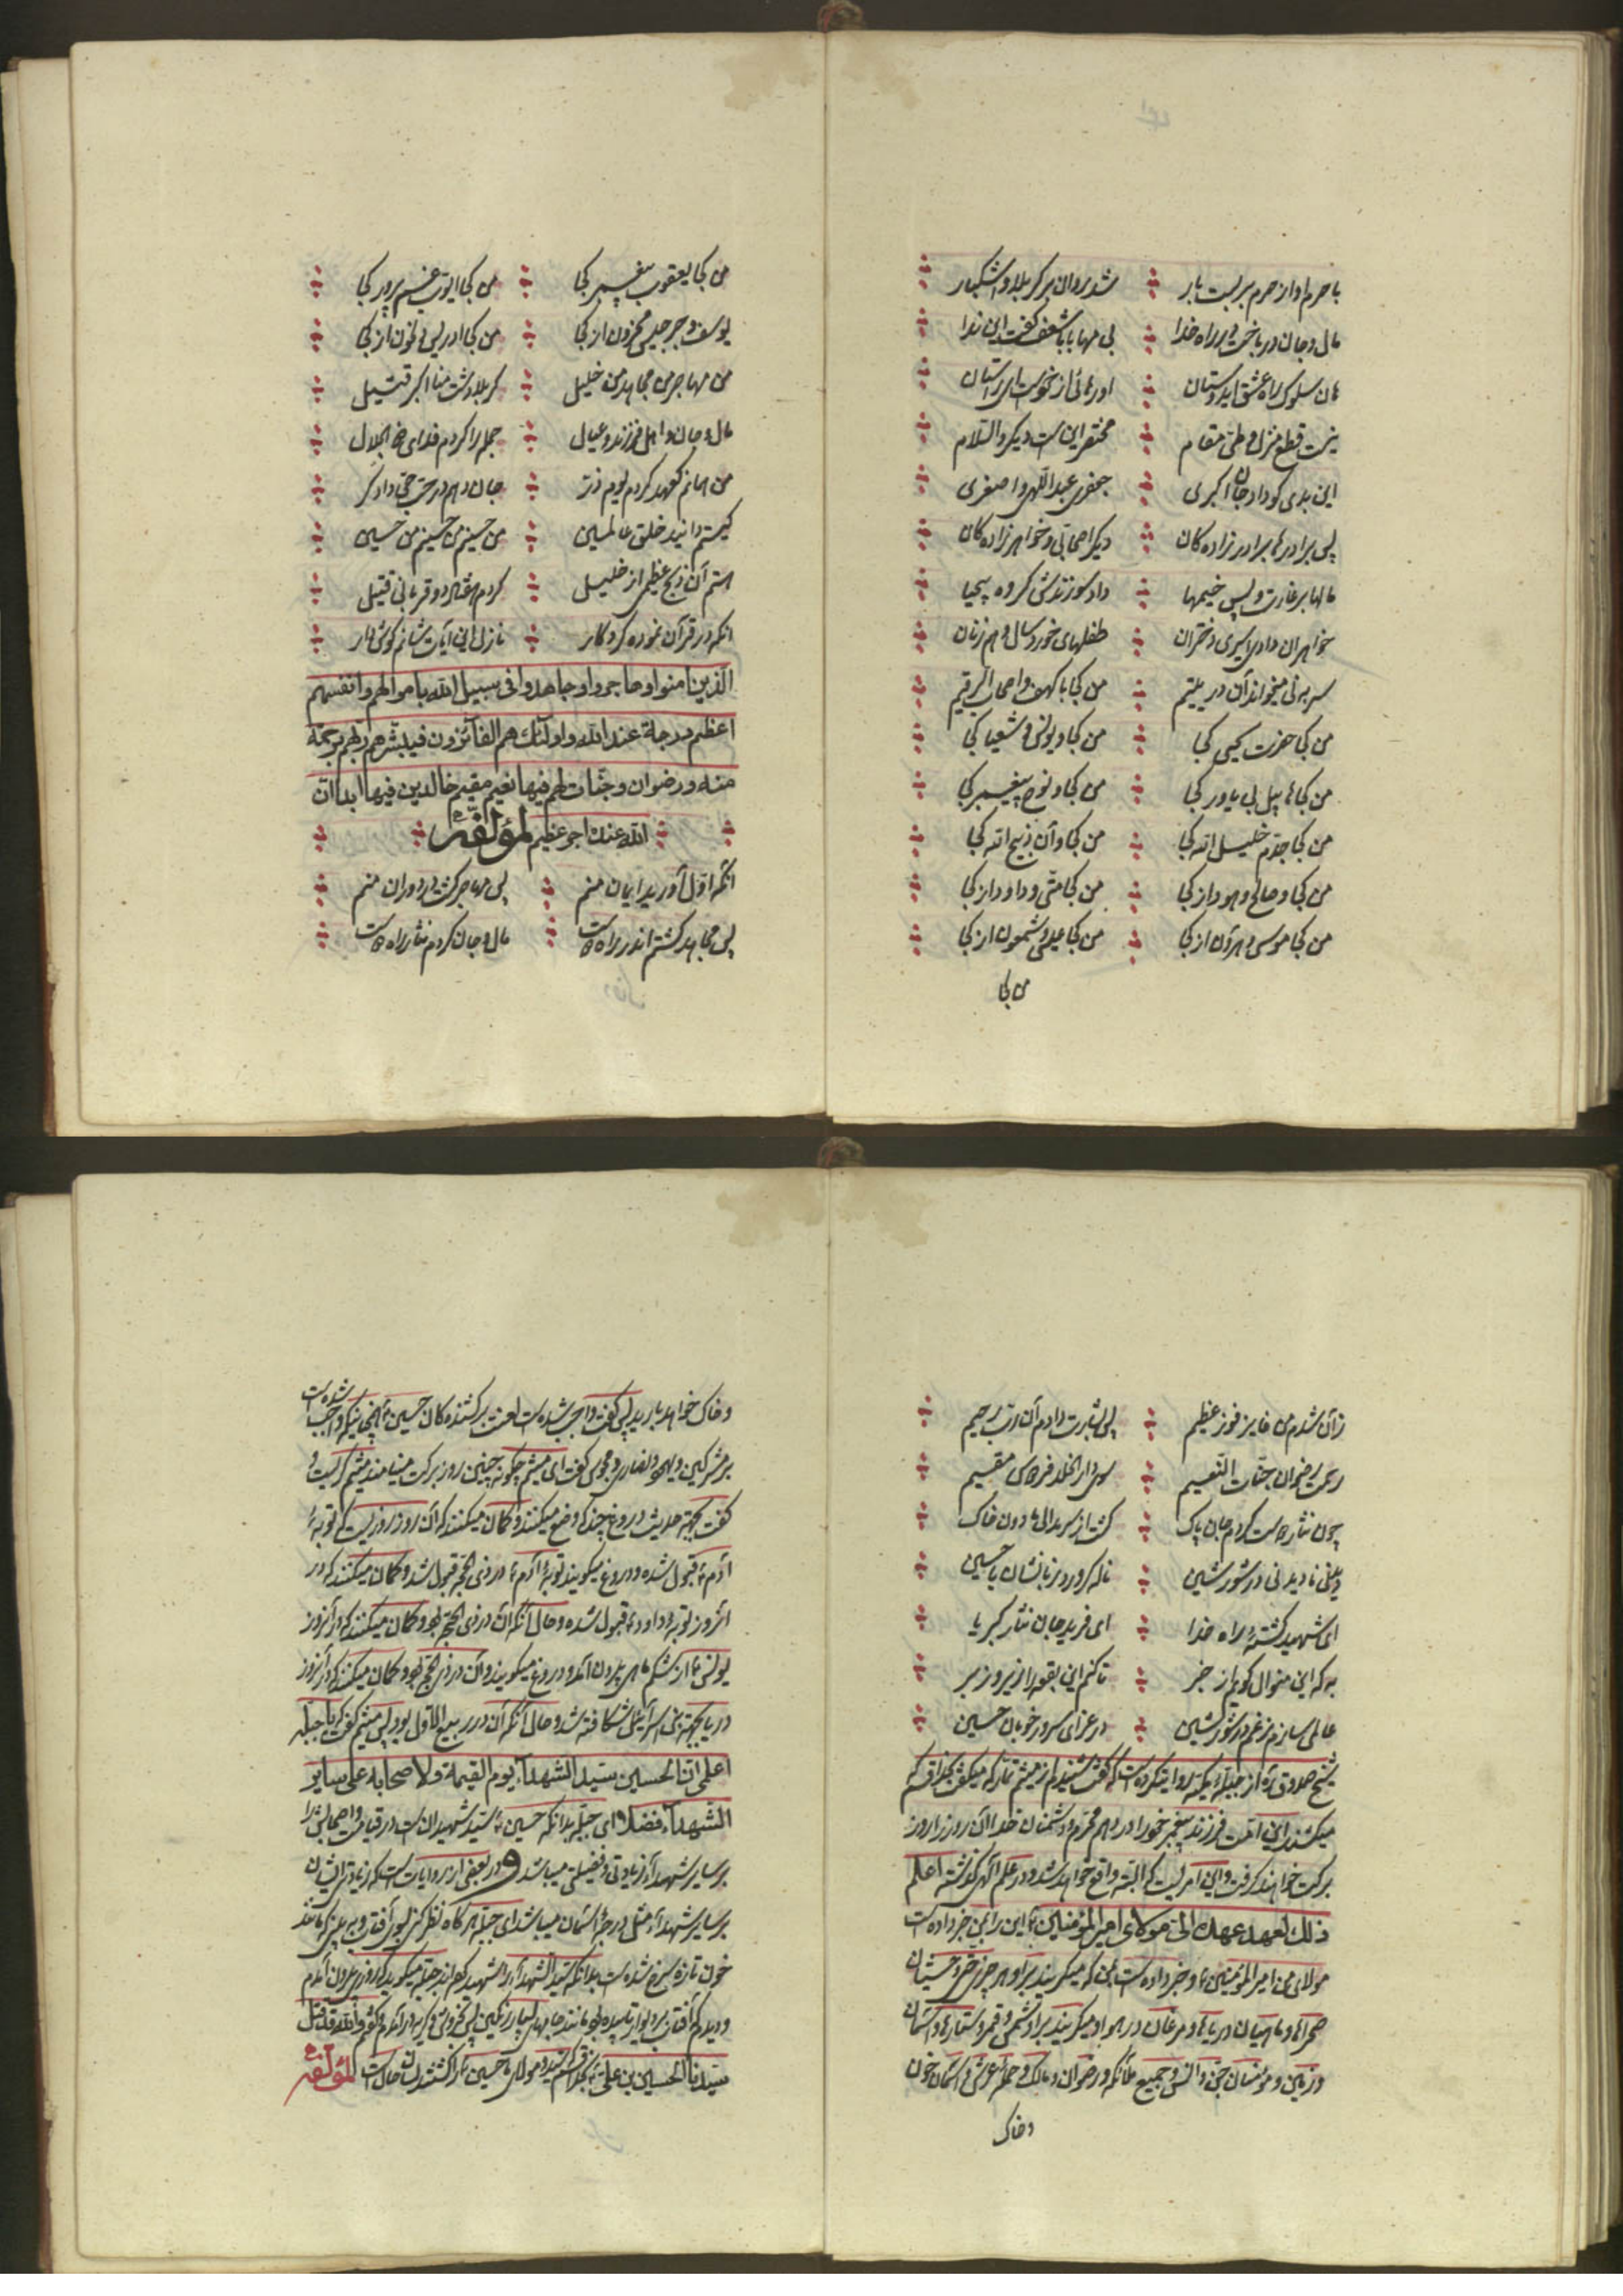 با حرم او از حرم بربست بار شد روان بر کربلا و اشکبار
مال و جان در باخت در راه خدا بی مهابا با شعف گفت این ندا
هان سلوک راه عشق ای دوستان
نیست قطع منزل و طی مقام مختصر این است دیگر والسلام
این بدی کو داد جان اکبری جعفری عبداللهی و اصغری
پس برادرها برادر زاده کان دیگر اصحابی و خواهر زاده کان
مالها بر غارت و پس خیمها داد سوزندش گروه بیحیا
خواهران داد اسیری دختران طفلهای خوردسال و هم زنان
سر به نی میخواند آن در یتیم من کجا با کهف و اصحاب الرقیم
من کجا حضرت یحیی کجا من کجا و یونس و شعیا کجا
من کجا هابیل بی یاور کجا من کجا و نوح پیغمبر کجا
من کجا جدّم خلیل الله کجا من کجا و آن ذبیح الله کجا
من کجا و صالح و هود از کجا من کجا متّی و داود از کجا
من کجا موسی و هرون از کجا من کجا عیسی و شمعون از کجا
من کجا
من کجا یعقوب پیغمبر کجا من کجا ایّوب غم پرور کجا
یوسف و جرجیس محزون از کجا من کجا ادریس و ذالنون از کجا
من مهاجر من مجاهد من خلیل کربلا دشت منا اکبر قتیل
مال و جان و اهل و فرزند و عیال جمله را کردم فدای ذالجلال
من همانم کعهد کردم یوم ذر جان دهم در حق دادگر
کیستم دانید خلق عالمین من حسینم من حسینم من حسین
هستم آن ذبح عظیم از خلیل کردم هفتاد و دو قربانی قتیل
آنکه در قرآن نموده کردکار نازل این آیات شانم گوش دار
الّذین امنوا و هاجروا و جاهدوا فی سبیل الله باموالهم و انفسهم
اعظم درجة عند الله و اولئک هم الفآئزون فیبشّرهم ربّهم برحمة
منه و رضوان و جنّات لهم فیها نعیم مقیم خالدین فیها ابدا انّ
الله عنده اجر عظیم لمؤلفه
آنکه اوّل آورید ایمان منم پس مهاجر گشت در دوران منم
پس مجاهد گشتم اندر راه مال و جان کردم نثار راه
زان شدم من فایز فوز عظیم پس بشارت دادم آن ربّ رحیم
رحمت رضوان جنّات النّعیم سوی دار الخلد فردوس مقیم
چون نثار کردم جان پاک گشت از سر بدالی مادون خاک
ای شهید کشتهٔ راه خدا ای فرید جان نثار کبریا
به که این منوال گویم از خبر تا کنم این بقعه را زیر و زبر
عالمی سازم ز غم در شور و شین در عزای سرور خوبان حسین
شیخ صدوق ره از جبلّهٔ مکیّه روایت کرده است که گفت شنیدم از میثم تمّار که میگفت بخدا قسم که
میکشند این امّت فرزند پیغمبر خود را در دهم محرم و دشمنان خدا آن روز را روز
برکت خواهند گرفت و این امریست که البتّه واقع خواهد شد و در علم الهی گذشته اعلم
ذلک لعهد عهده الیّ مولای امیر المؤمنین این را بمن خبر داده است
مولای من امیر المؤمنین و خبر داده است بمن که میگریند بر او هر چیز حتّی وحشیان
صحراها و ماهیان دریاها و مرغان در هوا و میگریند بر او شمس و قمر و ستارها و آسمان
و زمین و مؤمنان جنّ و انس و جمیع ملآئکه و رضوان و مالک و حملهٔ عرش و آسمان خون
و خاک
و خاک خواهد بارید پس گفت واجب شده است لعنت بر کشنده کان حسین همچنانکه واجب شده است
بر مشرکین و یهود و نصاری و مجوس گفت ای میثم چگونه چنین روز برکت مینامند میثم گریست و
گفت بجهة حدیث دروغی چند که وضع میکنند و گمان میکنند که آن روز روزیست که توبهٔ
آدم قبول شده و دروغ میگویند توبهٔ آدم در ذی الحجّه قبول شد و گمان میکنند که در
آنروز توبهٔ داود قبول شده و حال آنکه آن در ذی الحجّه بود و گمان میکنند که در آنروز
یونس از شکم ماهی بیرون آمد و دروغ میگویند و آن در ذی حجّه بود و گمان میکنند که در آنروز
دریا بجهة بنی اسرآئیل شکافته شد و حال آنکه آن در ربیع الاوّل بود پس میثم گفت که یا جبلّه
اعلمی انّ الحسین سیّد الشهدآء یوم القیمة و لاصحابه علی سایر
الشهدآء فضلا ای جبلّه بدانکه حسین سیّد شهیدان است در قیامت و اصحابش را
بر سایر شهدآء زیادتی و فضیلتی میباشد و در بعضی از روایات است که زیادتی ایشان
بر سایر شهدآء مثل درجهٔ آسمان میباشد ای جبلّه هرگاه نظر کنی بسوی آفتاب و به بینی که مانند
خون تازه سرخ شده است بدانکه سیّد الشهدآء را شهید کرده‌اند جبلّه میگوید که روزی بیرون آمدم
و دیدم که آفتاب بر دیوار تابیده بود مانند جامهای بسیار رنگین پس خروش و گریه در آمدم و گفتم و الله قد قتل
سیّدنا الحسین بن علی بخدا قسم سیّد و مولای ما حسین را کشتند لمؤلفه